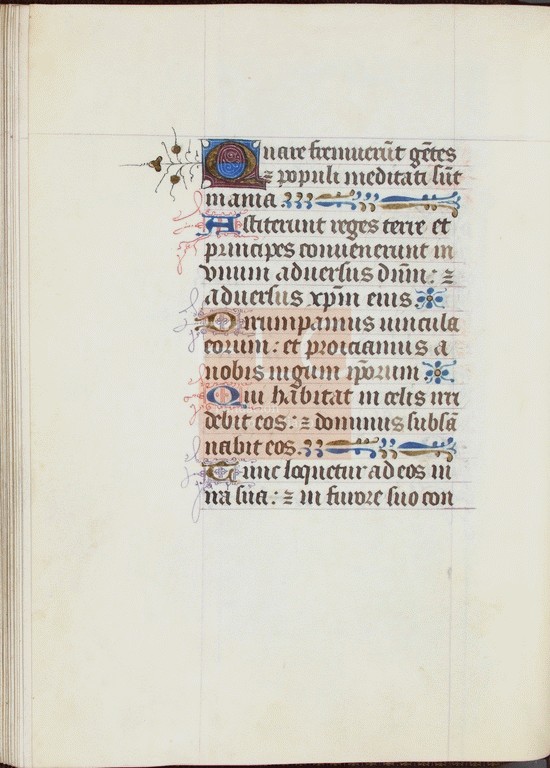 Quare fremuerūt gētes
⁊ populi meditati sūt
inania
Astiterunt reges terre et
principes conuenerunt in
vnum aduersus dn̄m : ⁊
aduersus xp̄m eius
Dirumpamus uincula
eorum : et proiciamus a
nobis iugum ip̄orum
Qui habitat in celis irri
debit eos : ⁊ dominus subsā
nabit eos.
Tunc loquetur ad eos in
ira sua : ⁊ in furore suo con